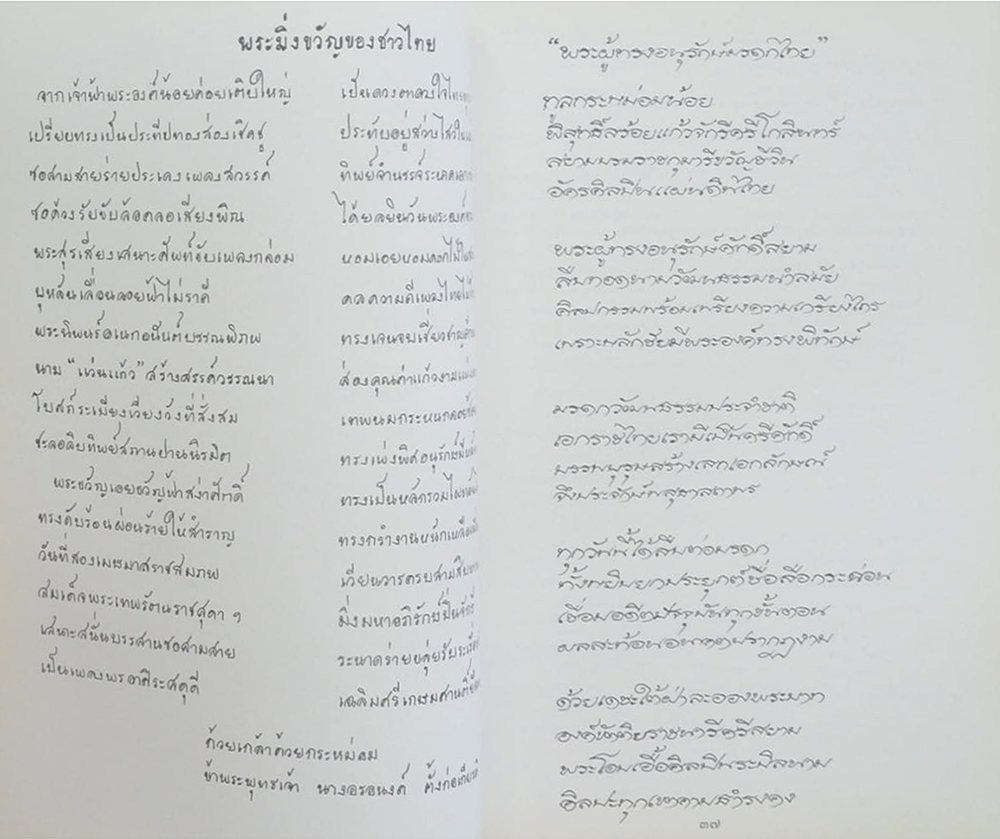 พระมิ่งขวัญของชาวไทย
จากเจ้าฟ้าพระองค์น้อยค่อยเติบใหญ่ เป็นดวงตาดวงใจไทย
เปรียบทรงเป็นประทีปทองส่องเชิดชู ประทับอยู่สว่างไสวใน
ซอสามสายร่ายประเลงเพลงสวรรค์ ทิพย์จำนรรจ์ระนาดเอก
ซอด้วงรับขับล้อคลอเสียงพิณ ได้ยลยินวันพระองค์
พระสุรเสียงเสนาะศัพท์ขับเพลงกล่อม หอมเอยหอมดอกไม้
บุหลันเลื่อนลอยฟ้าไม่ราคี ดลความดีเพลงไทย
พระนิพนธ์อเนกอนันต์บรรณพิภพ ทรงเจนจบเชี่ยวชาญ
นาม "แว่นแก้ว" สร้างสรรค์วรรณนา ส่องคุณค่าแก้วงาม
โบสถ์ระเบียงเวียงวังที่สั่งสม เทพพนมกระหนก
ชะลอลิบทิพย์สถานปานนิรมิต ทรงเพ่งพิศอนุรักษ์
พระขวัญเอยขวัญฟ้าสง่าศักดิ์ ทรงเป็นหลักรวมไผท
ทรงดับร้อนผ่อนร้ายให้สำราญ ทรงกรำงานหนักเหลือ
วันที่สองเมษมาสราชสมภพ เวียนวารครบสามสิบ
สมเด็จพระเทพรัตนราชสุดา ฯ มิ่งมหาอภิรักษ์ปิ่น
เสนาะสนั่นบรรสานซอสามสาย ระนาดร่ายขลุ่ยรับ
เป็นเพลงพรอาศิระสดุดี เฉลิมศรีเกษมศานติ์
ด้วยเกล้าด้วยกระหม่อม
ข้าพระพุทธเจ้า นางอรอนงค์ ตั้งก่อเกียรติ
"พระผู้ทรงอนุรักษ์มรดกไทย"
ทูลกระหม่อมน้อย
พิสุทธิ์สร้อยแก้วจักรีศรีโกสินทร์
สยามบรมราชกุมารีขวัญชีวิน
อัครศิลปินแผ่นดินไทย
พระผู้ทรงอนุรักษ์ศักดิ์สยาม
สืบทอดตามวัฒนธรรมนำสมัย
ศิลปกรรมพร้อมเพรียงความเกรียงไกร
เพราะหลักชัยมีพระองค์ทรงพิทักษ์
มรดกวัฒนธรรมประจำชาติ
เอกราชไทยเรามีเป็นศรีศักดิ์
บรรพบุรุษสร้างเลกเอกลักษณ์
จึงประจักษ์
ทุกวันนี้ได้สืบต่อมรดก
ทั้งหยิบยกประยุกต์ชื่อลือกระฉ่อน
เชื่อมอดีตปัจจุบันทุกขั้นตอน
ผลสะท้อนอนาคตปรากฏงาม
ด้วยเดชะใต้ฝ่าละอองพระบาท
องค์ขัตติยราชนารีศรีสยาม
พระโอบเอื้อศิลปิน
ศิลปะทุกเขตคาม
๓๗